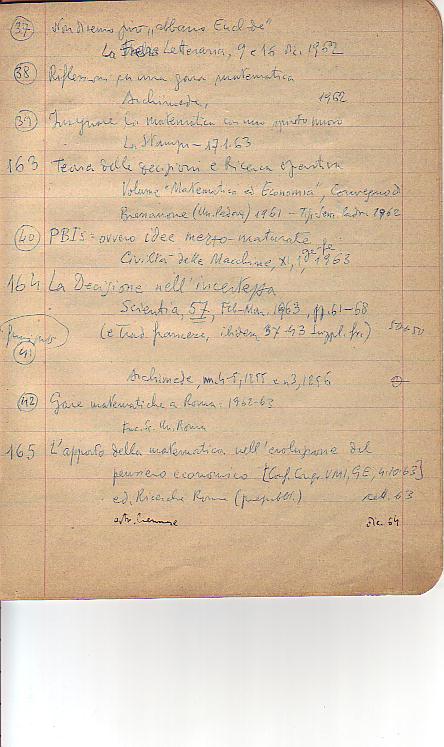 37 Non diremo più „abbasso Euclide"
La Fiera Letteraria, 9 e 16 Dic. 1962
38 Riflessioni su una gara matematica
Archimede, 1962
39 Insegnare la matematica con uno spirito nuovo
La Stampa - 17.1.63
163 Teoria delle decisioni e Ricerca operativa
Volume "Matematica ed Economia", Convegno di
Bressanone (Un. Padova) 1961 - Tip. Sem. Padova 1962
40 PBI's = ovvero idee mezzo-maturate
Civiltà delle Macchine, XI, 1963
164 La Decisione nell'incertezza
Scientia, 57, Feb-Mar. 1963, pp. 61-68
(e Trad. francese, ibidem 37-43 suppl. fr.) 50+50
41
Archimede, nn 4-5, 1255 e n 3, 1256
42 Gare matematiche a Roma: 1962-63
Fac. Sc. Un. Roma
165 L'apporto della matematica nell'evoluzione del
pensiero economico [Conf. Congr. UMI, GE, 4.10.63]
ed. Ricerche Roma (prepubbl.) sett. 63
estr. Cremonese dic. 64